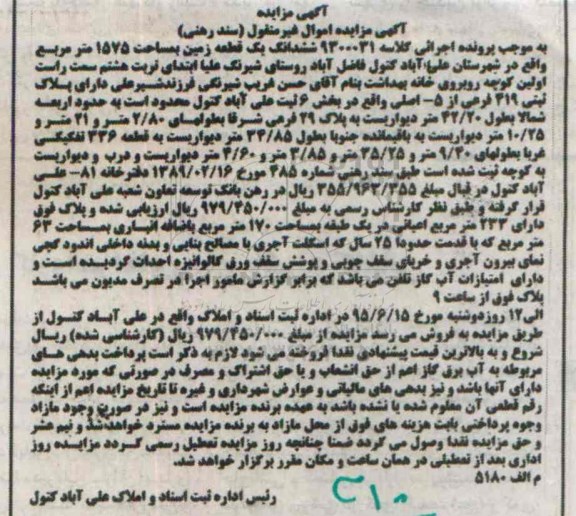 آگهی مزایده
آگهی مزایده اموال غیرمنقول (سند رهنی)
به موجب پرونده اجرائی کلاسه ۹۳۰۰۰۳۱ ششدانگ یک قطعه زمین بمساحت ۱۵۷۵ متر مربع
واقع در شهرستان علی آباد کتول فاضل آباد روستای شیرنگ علیا ابتدای تربت هشتم سمت راست
اولین کوچه روبروی خانه بهداشت بنام آقای حسن غریب شیرنگی فرزند شیرعلی دارای پلاک
ثبتی ۴۱۹ فرعی از ۵- اصلی واقع در بخش ۶ ثبت علی آباد کتول محدود است به حدود اربعه
شمالا بطول ۴۲/۲۰ متر دیواریست به پلاک ۲۹ فرعی شرقا بطولهای ۲/۸۰ متر و ۲۱ متر و
۱۰/۲۵ متر دیواریست به باقیمانده جنوبا بطول ۳۴/۸۵ متر دیواریست به قطعه ۳۳۶ تفکیکی
غربا بطولهای ۹/۴۰ متر و ۳۵/۲۵ متر و ۳/۸۵ متر و ۴/۶۰ متر دیواریست و درب و دیواریست
به کوچه ثبت شده است طبق سند رهنی شماره ۴۸۵ مورخ ۱۳۸۹/۰۲/۱۶ دفترخانه ۸۱- علی
آباد کتول در قبال مبلغ ۳۵۵/۹۶۳/۳۵۵ ریال در رهن بانک توسعه تعاون شعبه علی آباد کتول
قرار گرفته و طبق نظر کارشناس رسمی به مبلغ ۹۷۹/۴۵۰/۰۰۰ ریال ارزیابی شده و پلاک فوق
دارای ۲۳۳ متر مربع اعیانی در یک طبقه بمساحت ۱۷۰ متر مربع باضافه انباری بمساحت ۶۳
متر مربع که با قدمت حدودا ۲۵ سال که اسکلت آجری با مصالح بنایی و بدنه داخلی اندود گچی
نمای بیرون آجری و خرپای سقف چوبی و پوشش سقف ورق گالوانیزه احداث گردیده است و
دارای امتیازات آب گاز تلفن می باشد که برابر گزارش مامور اجرا در تصرف مدیون می باشد
پلاک فوق از ساعت ۹
الی ۱۲ روز دوشنبه مورخ ۹۵/۶/۱۵ در اداره ثبت اسناد و املاک واقع در علی آباد کتول از
طریق مزایده به فروش می رسد مزایده از مبلغ ۹۷۹/۴۵۰/۰۰۰ ریال (کارشناسی شده) ریال
شروع و به بالاترین قیمت پیشنهادی نقدا فروخته می شود لازم به ذکر است پرداخت بدهی های
مربوطه به آب برق گاز اعم از حق انشعاب و یا حق اشتراک و مصرف در صورتی که مورد مزایده
دارای آنها باشد و نیز بدهی های مالیاتی و عوارض شهرداری و غیره تا تاریخ مزایده اعم از اینکه
رقم قطعی آن معلوم شده یا نشده باشد به عهده برنده مزایده است و نیز در صورت وجود مازاد
وجوه پرداختی بابت هزینه های فوق از محل مازاد به برنده مزایده مسترد خواهد شد و نیم عشر
و حق مزایده نقدا وصول می گردد ضمنا چنانچه روز مزایده تعطیل رسمی گردد مزایده روز
اداری بعد از تعطیلی در همان ساعت و مکان مقرر برگزار خواهد شد.
م الف ۵۱۸۰
رئیس اداره ثبت اسناد و املاک علی آباد کتول